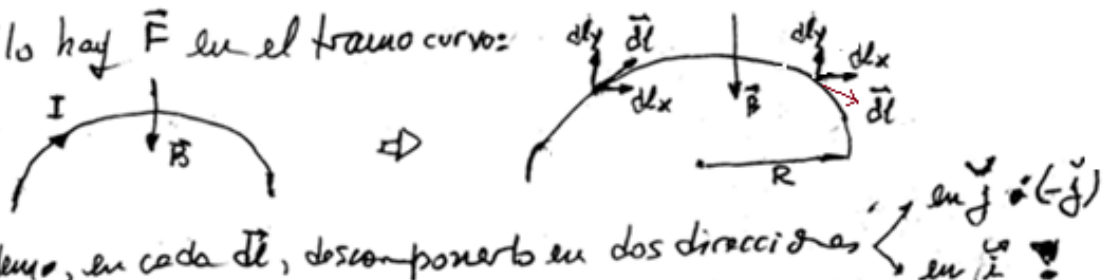 lo hay F⃗ en el tramo curvo:
dly dl⃗ dly dlx
I dlx B⃗ dl⃗
B⃗ ⇨
R
en ĵ ó (-ĵ)
en cada dl⃗, descomponerlo en dos direcciones
en î